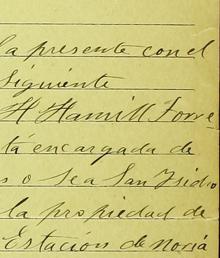 la presente con el
siguiente
H Hamill Torre-
tá encargada de
s o sea San Ysidro
la propiedad de
Estación de Noria